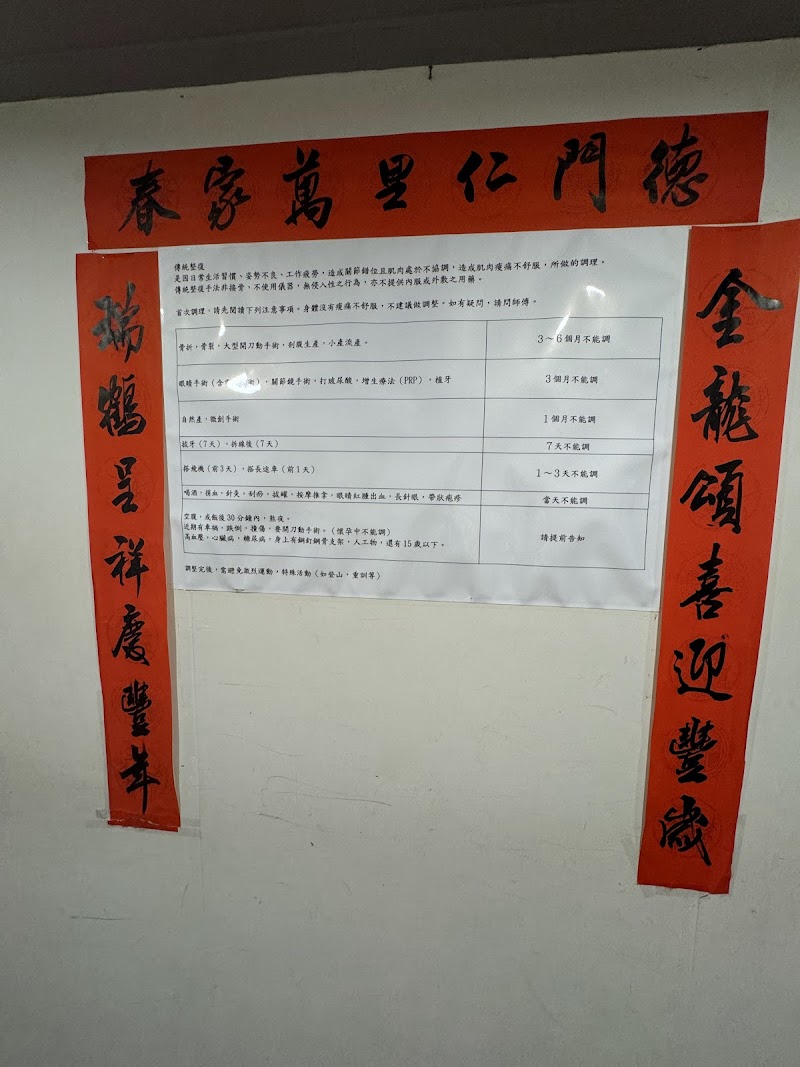 德門仁里萬家春
金龍頌喜迎豐歲
瑞鶴呈祥慶豐年
傳統整復
是因日常生活習慣、姿勢不良、工作疲勞,造成關節錯位且肌肉處於不協調,造成肌肉痠痛不舒服,所做的調理。
傳統整復手法非接骨,不使用儀器,無侵入性之行為,亦不提供內服或外敷之用藥。
首次調理,請先閱讀下列注意事項。身體沒有痠痛不舒服,不建議做調整。如有疑問,請問師傅。
骨折,骨裂,大型開刀動手術,剖腹生產,小產流產。
3～6個月不能調
眼睛手術(含術),關節鏡手術,打玻尿酸,增生療法(PRP),植牙
3個月不能調
自然產,微創手術
1個月不能調
拔牙(7天),拆線後(7天)
7天不能調
搭飛機(前3天),搭長途車(前1天)
1～3天不能調
喝酒,捐血,針灸,刮痧,拔罐,按摩推拿,眼睛紅腫出血,長針眼,帶狀皰疹
當天不能調
空腹,或飯後30分鐘內,熬夜。
近期有車禍,跌倒,撞傷,要開刀動手術。(懷孕中不能調)
高血壓,心臟病,糖尿病,身上有鋼釘鋼骨支架,人工物,還有15歲以下。
請提前告知
調整完後,需避免激烈運動,特殊活動(如登山,重訓等)